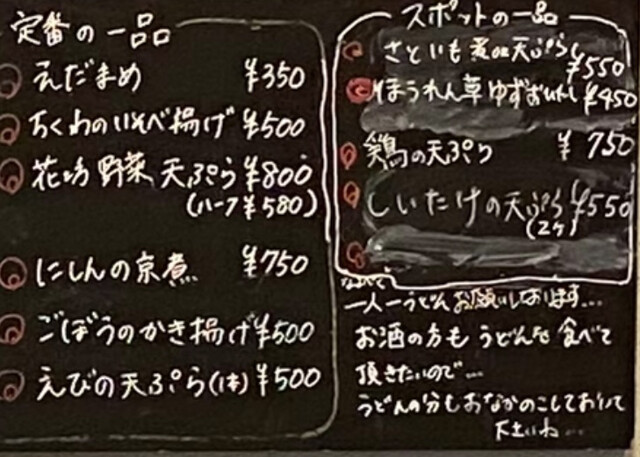 定番の一品
えだまめ ¥350
ちくわのいそべ揚げ ¥500
野菜天ぷら ¥800
(ハーフ¥580)
にしんの京煮 ¥750
ごぼうのかき揚げ ¥500
えびの天ぷら(1本) ¥500
スポットの一品
さといも煮の天ぷら ¥550
ほうれん草ゆずおひたし ¥450
鶏の天ぷら ¥750
しいたけの天ぷら ¥550
(2ケ)
一人一うどんお願いしております...
お酒の方もうどんを食べて
頂きたいので...
うどんの分もおなかのこしておいて
下さいね...